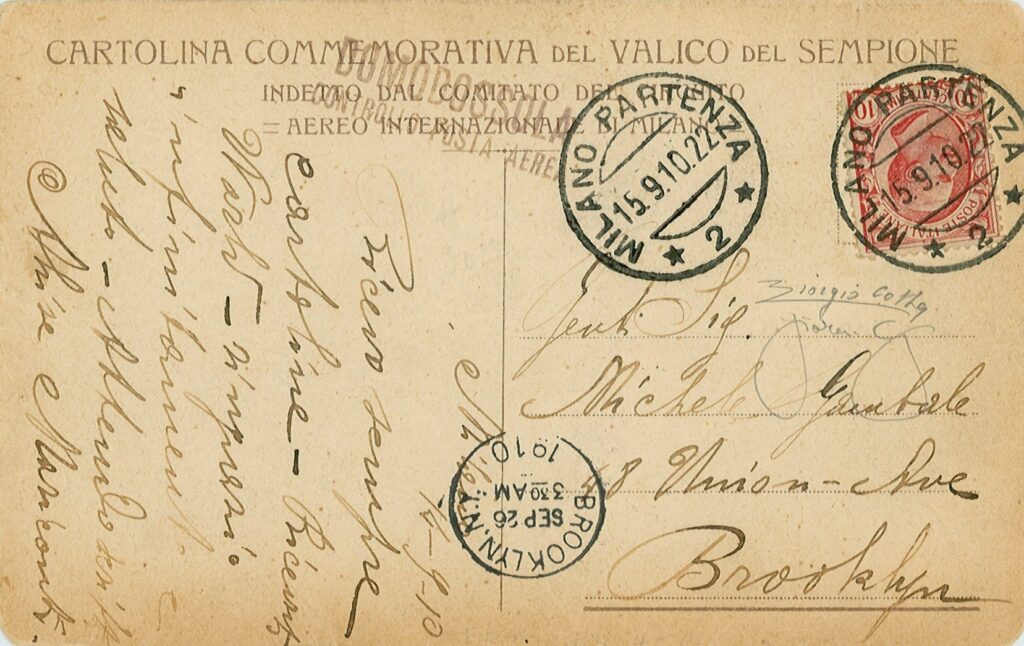 CARTOLINA COMMEMORATIVA DEL VALICO DEL SEMPIONE
INDETTO DAL COMITATO DEL CIRCUITO
= AEREO INTERNAZIONALE DI MILANO
DOMODOSSOLA
CONTROLLO POSTA AEREA
MILANO PARTENZA
15.9.10.22
2
MILANO PARTENZA
15.9.10.22
2
10 10
POSTE ITALIANE
Giorgio Colla
Gent. Sig.
Michele Gambale
48 Union Ave
Brooklyn
BROOKLYN, N.Y.
SEP 26
3 30 AM
1910
14-9-10
Ricevo sempre
cartoline - Ricevuti
infinitamente
saluti - Attendo
Marconti